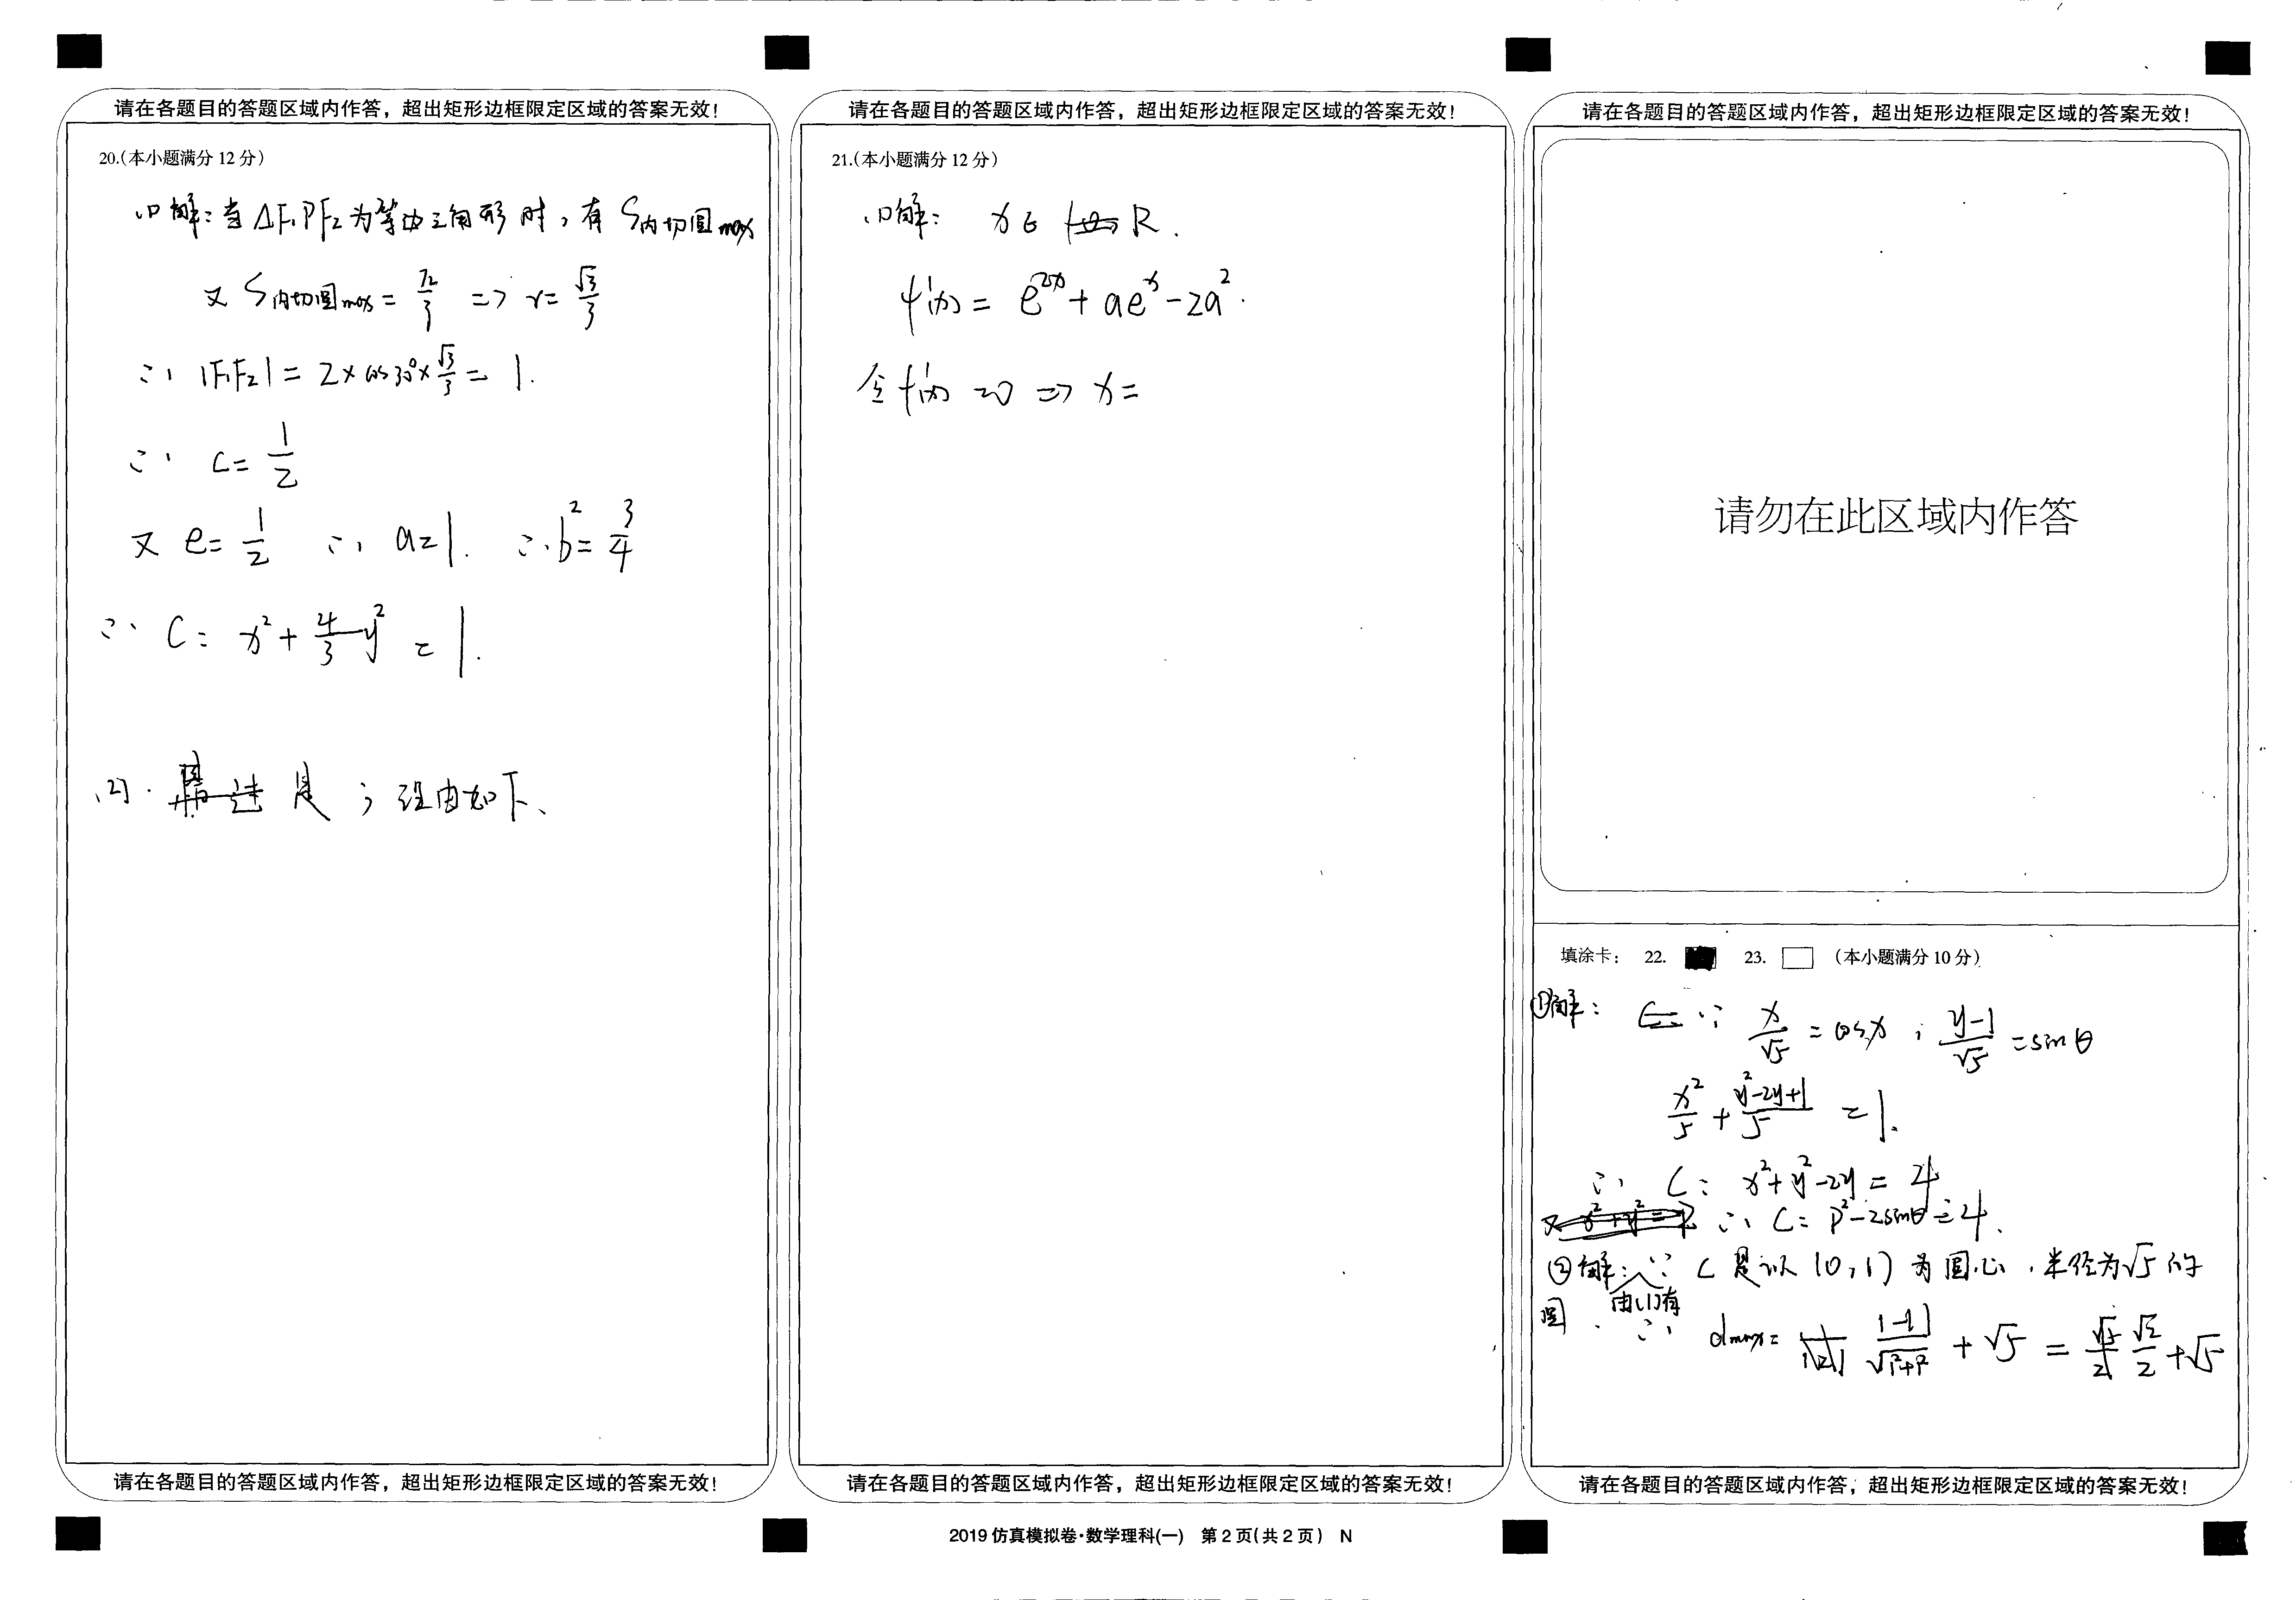 请在各题目的答题区域内作答，超出矩形边框限定区域的答案无效！
20.（本小题满分 12 分）
(1) 解：当 ΔF₁PF₂ 为等边三角形时，有 S内切圆max
又 S内切圆max = π/3 => r = √3/3
∴ |F₁F₂| = 2 × cos30° × √3/3 = 1.
∴ c = 1/2
又 e = 1/2 ∴ a=1. ∴ b² = 3/4
∴ C: x² + 4/3 y² = 1.
(2). 是；理由如下、
请在各题目的答题区域内作答，超出矩形边框限定区域的答案无效！
请在各题目的答题区域内作答，超出矩形边框限定区域的答案无效！
21.（本小题满分 12 分）
(1) 解： x∈ R.
f'(x) = e^{2x} + ae^x - 2a².
令 f'(x) =0 => x=
请在各题目的答题区域内作答，超出矩形边框限定区域的答案无效！
请在各题目的答题区域内作答，超出矩形边框限定区域的答案无效！
请勿在此区域内作答
填涂卡： 22. 23. （本小题满分 10 分）
①解： ∵ x/√5 = cosx ; (y-1)/√5 = sinθ
x²/5 + (y²-2y+1)/5 = 1.
∴ C: x²+y²-2y = 4
∴ C: ρ²-2sinθ=4.
②解：由(1)有 ∵ C是以 (0,1) 为圆心，半径为√5 的
圆. ∴ dmax = |-1|/√(1²+1²) + √5 = √2/2 + √5
请在各题目的答题区域内作答，超出矩形边框限定区域的答案无效！
2019 仿真模拟卷·数学理科(一) 第 2 页(共 2 页) N